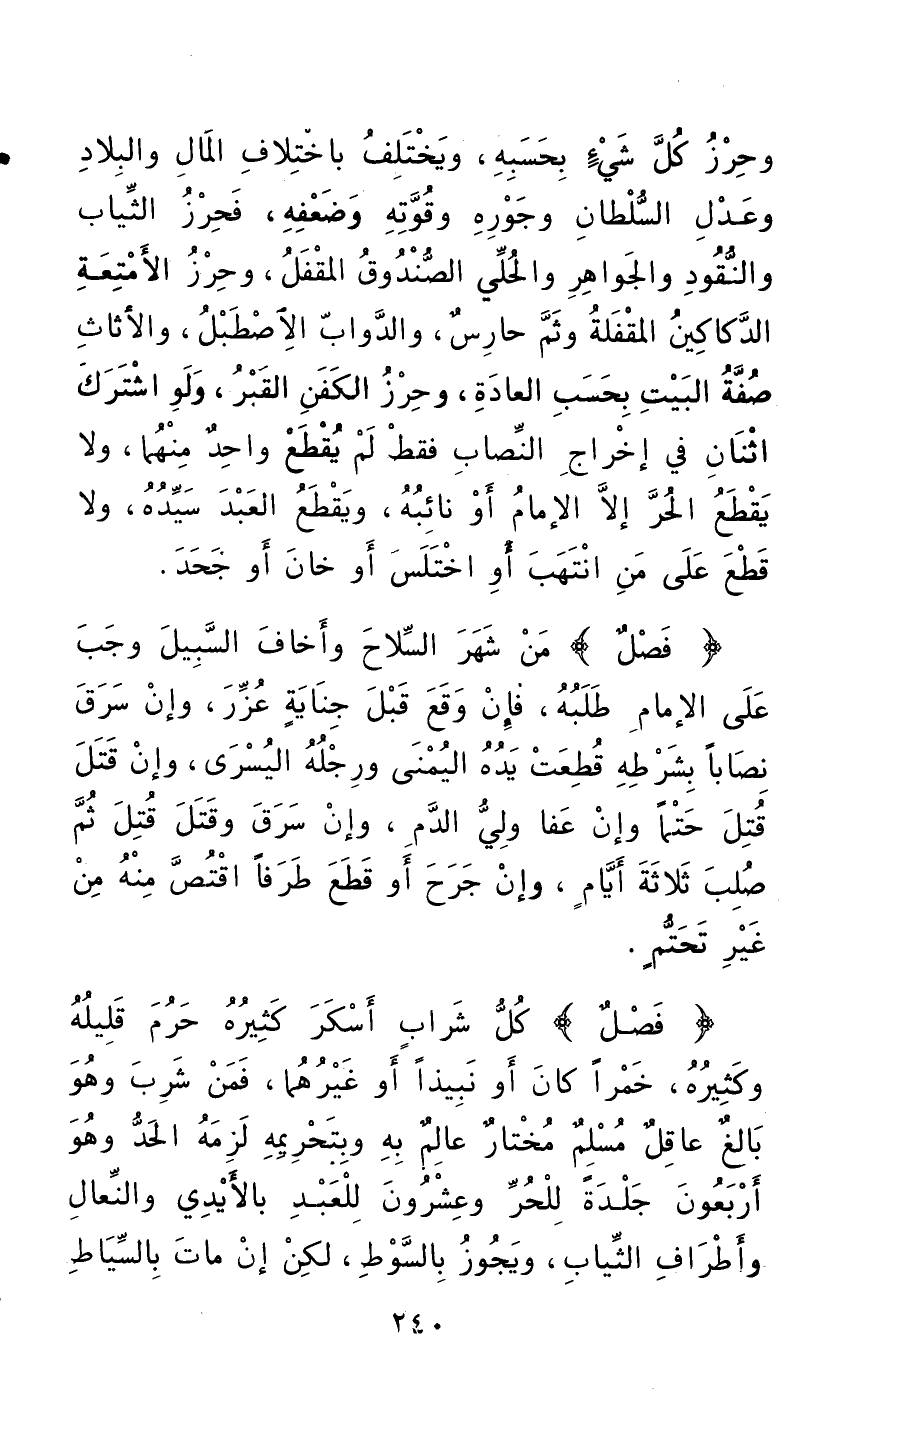 وحِرْزُ كُلَّ شَيْءٍ بِحَسَبِهِ، ويَخْتَلِفُ باخْتِلافِ المَالِ والبِلادِ
وعَدْلِ السُّلْطانِ وجَوْرِهِ وقُوَّتِهِ وَضَعْفِهِ، فَحِرْزُ الثِّياب
والنُّقُودِ والجَواهِرِ والحُلِّي الصُّنْدُوقُ المُقْفَلُ، وحِرْزُ الأَمْتِعَةِ
الدَّكاكِينُ المُقْفَلةُ وثَمَّ حارِسٌ، والدَّوابّ الإِصْطَبْلُ، والأثاثِ
صُفَّةُ البَيْتِ بِحَسَبِ العادَةِ، وحِرْزُ الكَفَنِ القَبْرُ، وَلَوِ اشْتَرَكَ
اثْنَانِ في إخْراجِ النِّصابِ فقطْ لَمْ يُقْطَعْ واحِدٌ مِنْهُما، ولا
يَقْطَعُ الحُرَّ إلاَّ الإمامُ أَوْ نائبُهُ، ويَقْطَعُ العَبْدَ سَيِّدُهُ، ولا
قَطْعَ عَلَى مَنِ انْتَهَبَ أَوِ اخْتَلَسَ أَو خانَ أَو جَحَدَ.
﴿ فَصْلٌ ﴾ مَنْ شَهَرَ السِّلاحَ وأَخافَ السَّبِيلَ وجَبَ
عَلَى الإمامِ طَلَبُهُ، فَإِنْ وَقَعَ قَبْلَ جِنَايَةٍ عُزِّرَ، وإنْ سَرَقَ
نِصَاباً بِشَرْطِهِ قُطِعَتْ يَدُهُ اليُمْنَى ورِجْلُهُ اليُسْرَى، وإنْ قَتَلَ
قُتِلَ حَتْماً وإنْ عَفا ولِيُّ الدَّمِ، وإنْ سَرَقَ وقَتَلَ قُتِلَ ثُمَّ
صُلِبَ ثَلاثَةَ أَيَّامٍ، وإنْ جَرَحَ أَو قَطَعَ طَرَفاً اقْتُصَّ مِنْهُ مِنْ
غَيْرِ تَحَتُّمٍ.
﴿ فَصْلٌ ﴾ كُلُّ شَرابٍ أَسْكَرَ كَثِيرُهُ حَرُمَ قَلِيلُهُ
وكَثِيرُهُ، خَمْراً كانَ أَو نَبِيذاً أَو غَيْرُهُما، فَمَنْ شَرِبَ وهُوَ
بَالغٌ عاقِلٌ مُسْلِمٌ مُخْتارٌ عالِمٌ بِهِ وبِتَحْرِيمِهِ لَزِمَهُ الحَدُّ وهُوَ
أَرْبَعُونَ جَلْدَةً لِلْحُرِّ وعِشْرُونَ لِلْعَبْدِ بالأَيْدِي والنِّعالِ
وأَطْرَافِ الثِّيابِ، ويَجُوزُ بالسَّوْطِ، لكِنْ إنْ ماتَ بِالسِّيَاطِ
٢٤٠